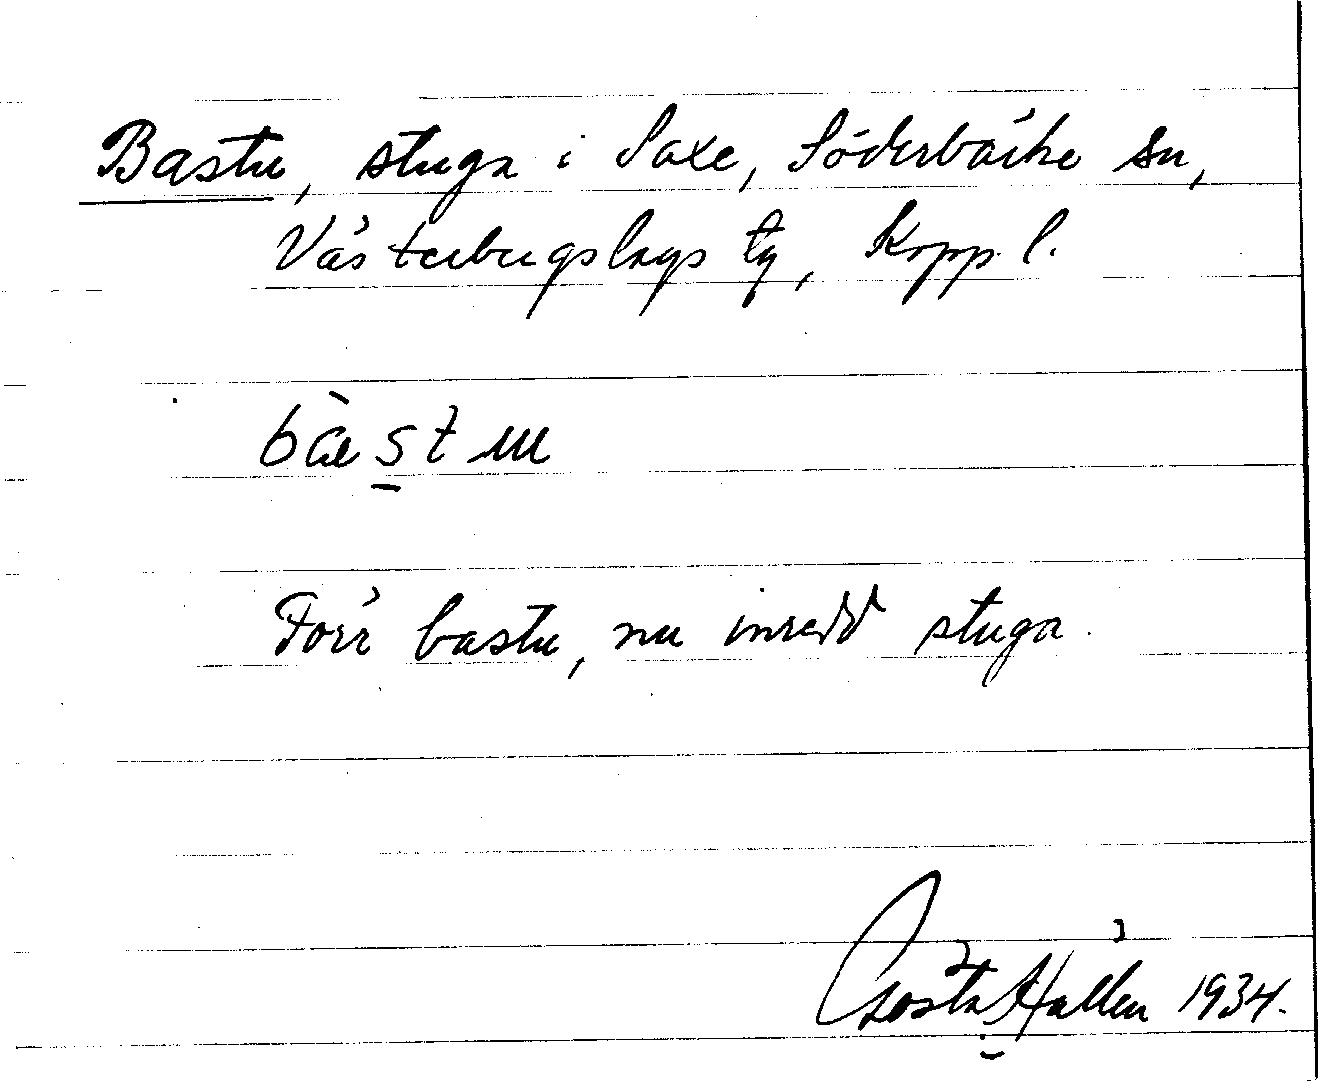 Bastu, stuga i Saxe, Söderbärke sn,
Västerbergslags tg, Kopp. l.
Förr bastu, nu inredd stuga.
Gösta Hallén 1934.